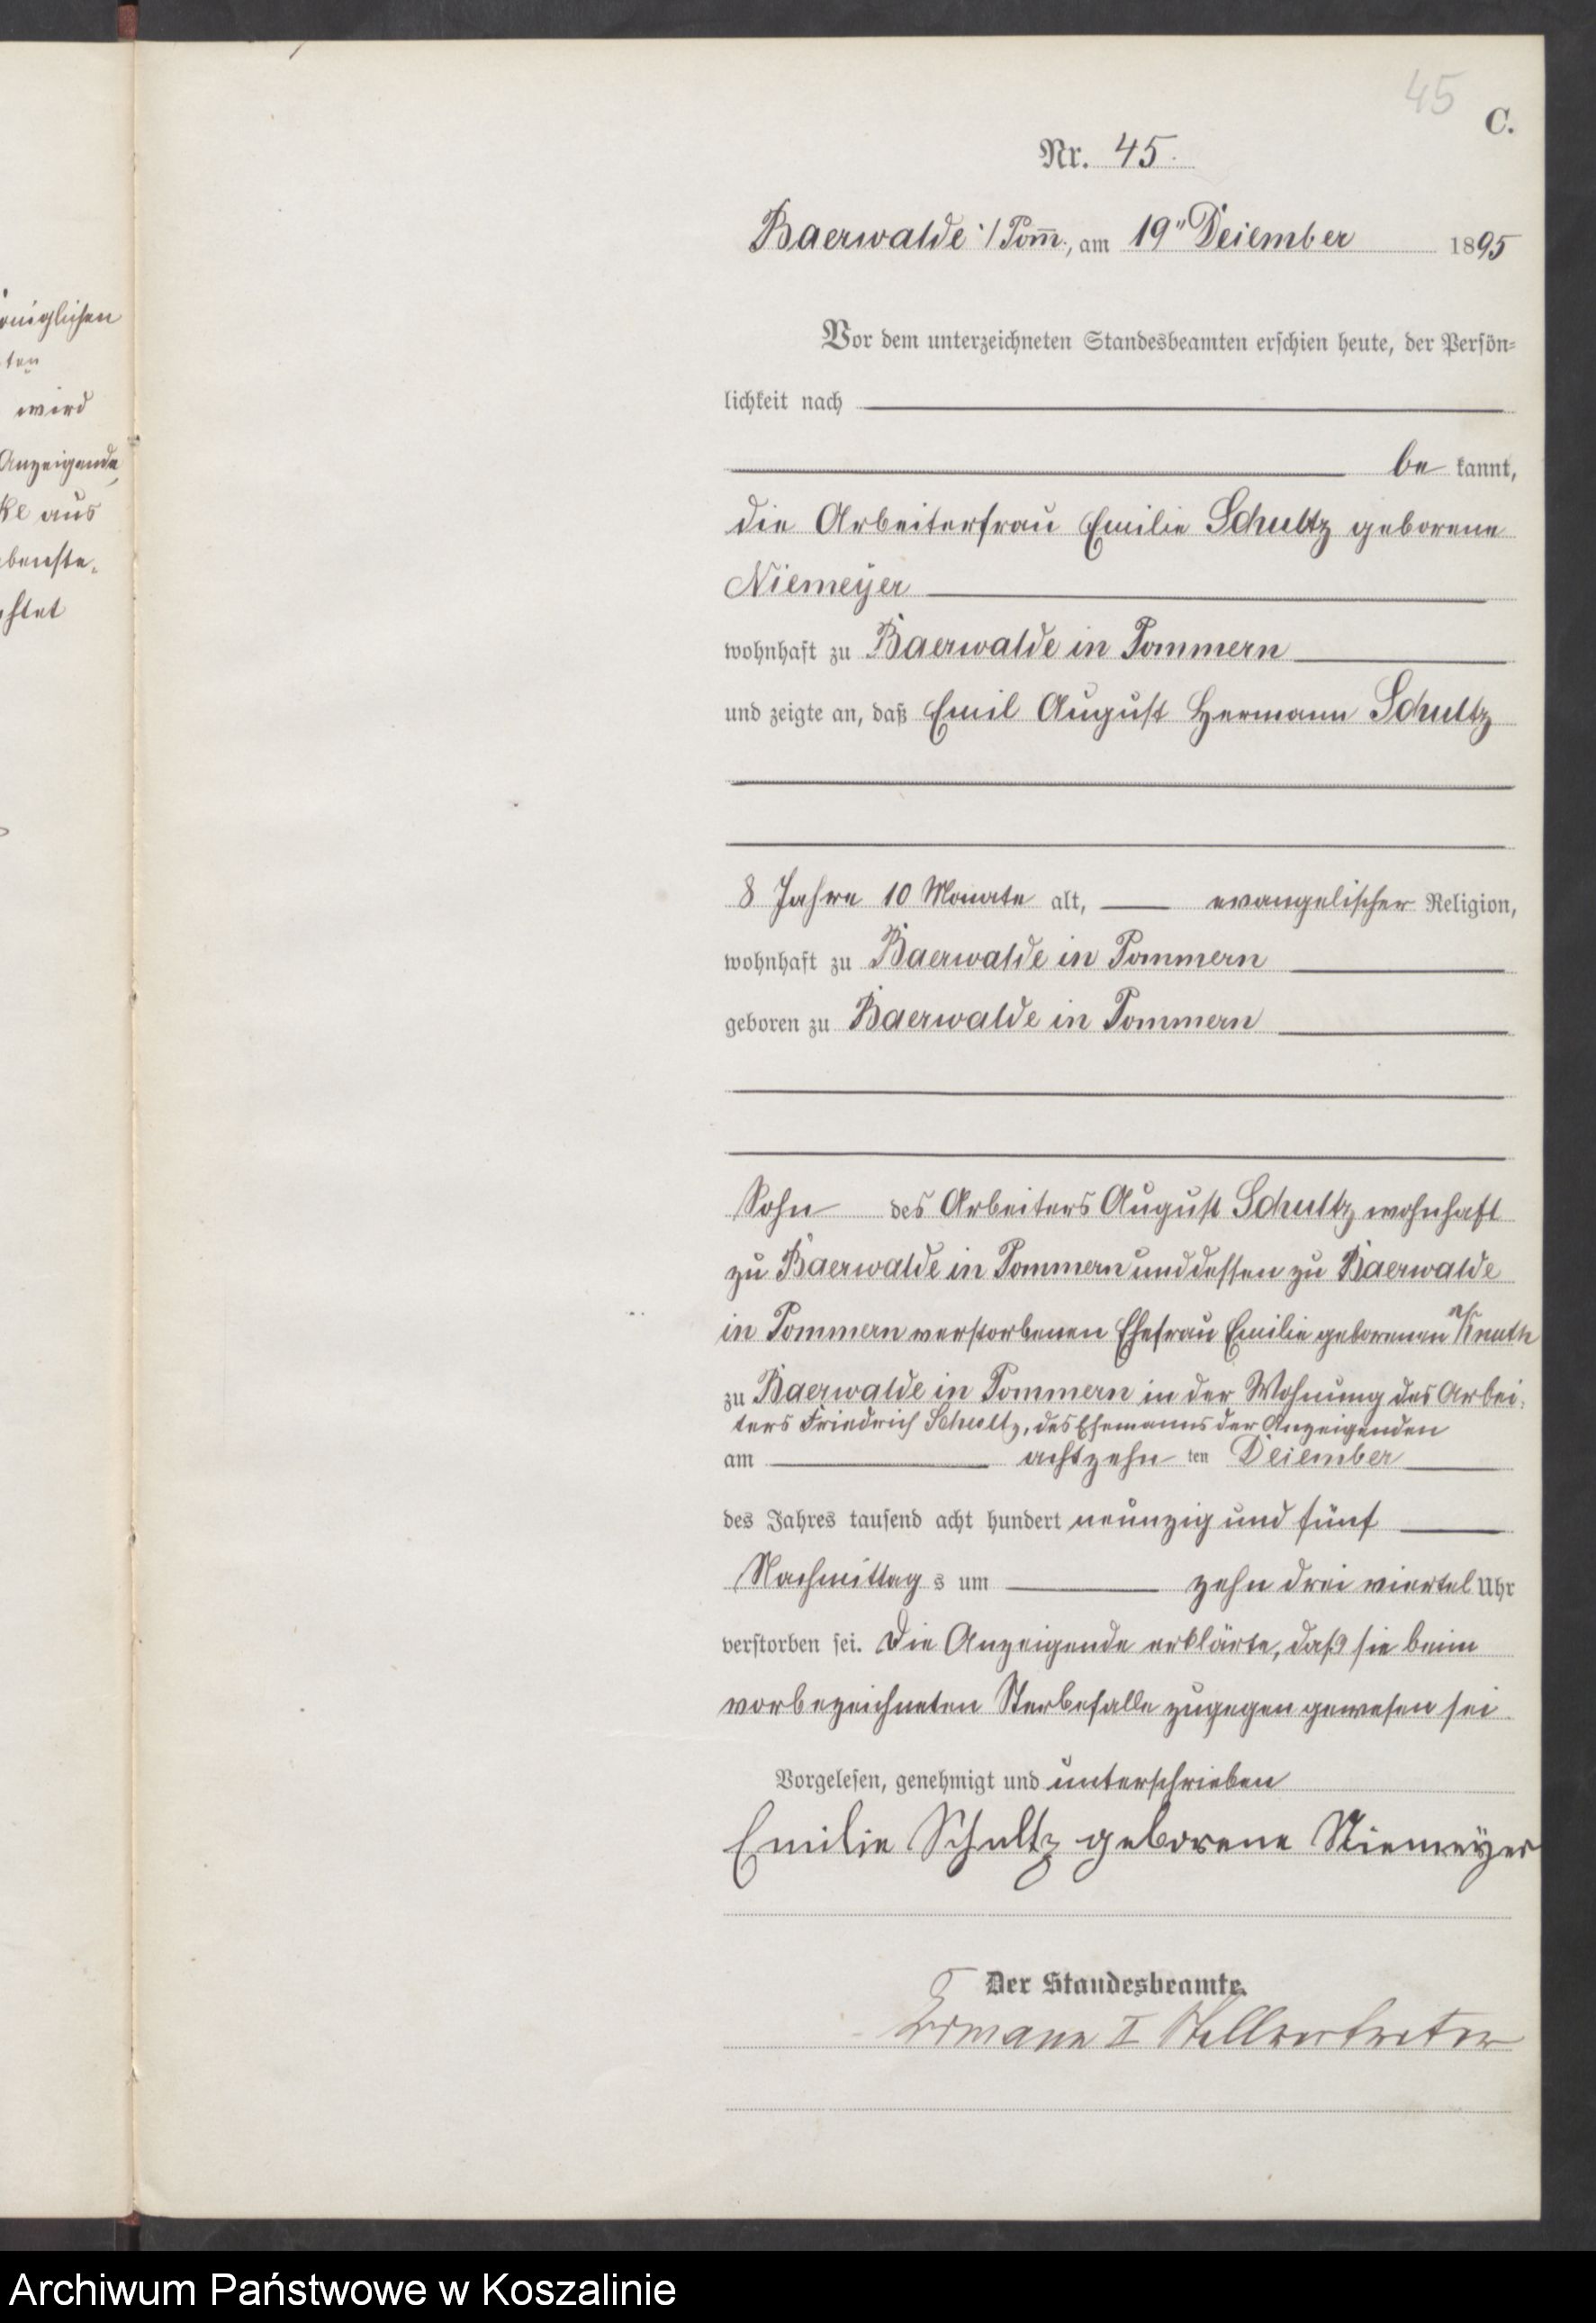 öniglichen
ten
wird
Anzeigende,
ke aus
chtet
45
C.
Nr. 45.
Baerwalde i/Pom̅., am 19" Dezember 1895
Vor dem unterzeichneten Standesbeamten erschien heute, der Persön=
lichkeit nach
be kannt,
die Arbeiterfrau Emilie Schultz geborene
Niemeyer
wohnhaft zu Baerwalde in Pommern
und zeigte an, daß Emil August Hermann Schultz
8 Jahre 10 Monate alt, evangelischer Religion,
wohnhaft zu Baerwalde in Pommern
geboren zu Baerwalde in Pommern
Sohn des Arbeiters August Schultz wohnhaft
zu Baerwalde in Pommern und dessen zu Baerwalde
in Pommern verstorbenen Ehefrau Emilie geborenen Knuth
zu Baerwalde in Pommern in der Wohnung des Arbei-
ters Friedrich Schultz, des Ehemanns der Anzeigenden
am achtzehn ten Dezember
des Jahres tausend acht hundert neunzig und fünf
Nachmittag s um zehn drei viertel Uhr
verstorben sei. Die Anzeigende erklärte, daß sie beim
vorbezeichneten Sterbefalle zugegen gewesen sei
Vorgelesen, genehmigt und unterschrieben
Emilie Schultz geborene Niemeyer
Der Standesbeamte.
II Stellvertreter
Archiwum Państwowe w Koszalinie